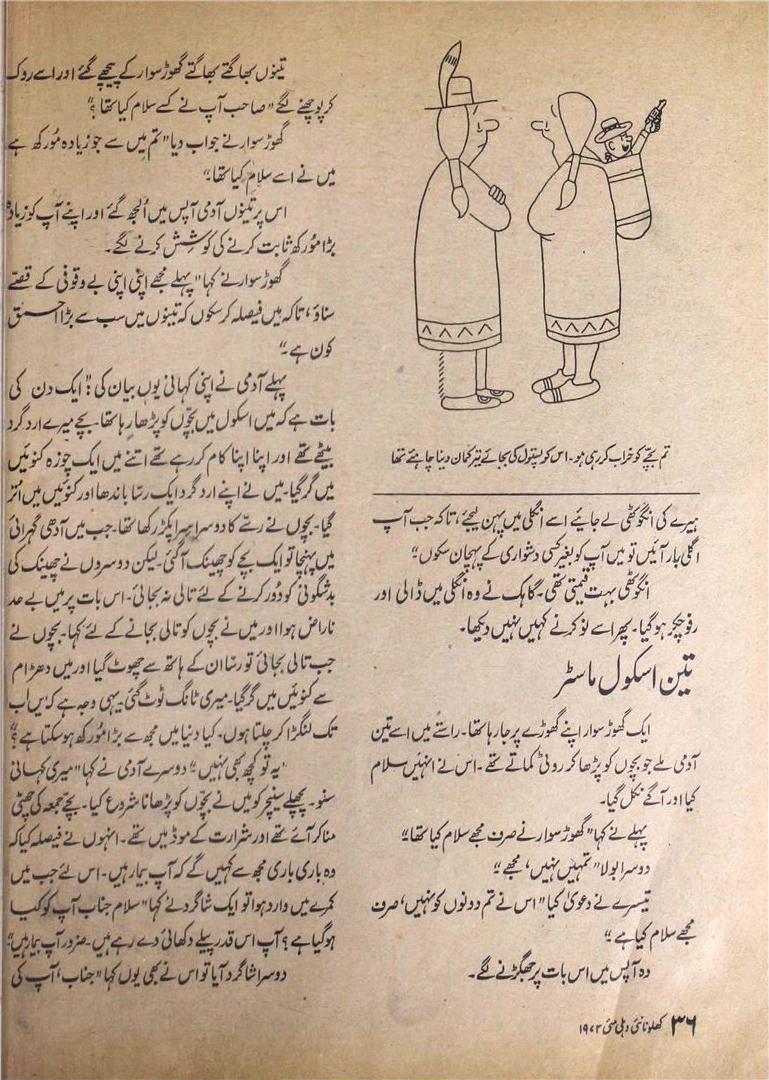 تم بچے کو خراب کر رہی ہو۔ اس کو پستول کی بجائے تیر کمان دینا چاہئے تھا
ہیرے کی انگوٹھی لے جایئے اسے انگلی میں پہن لیجئے، تاکہ جب آپ
اگلی بار آئیں تو میں آپ کو بغیر کسی دشواری کے پہچان سکوں"
انگوٹھی بہت قیمتی تھی۔ گاہک نے وہ انگلی میں ڈالی اور
رفو چکر ہو گیا۔ پھر اسے نوکر نے کہیں نہیں دیکھا۔
تین اسکول ماسٹر
ایک گھوڑ سوار اپنے گھوڑے پر جا رہا تھا۔ راستے میں اسے تین
آدمی ملے جو بچوں کو پڑھا کر روٹی کماتے تھے۔ اس نے انہیں سلام
کیا اور آگے نکل گیا۔
پہلے نے کہا "گھوڑ سوار نے صرف مجھے سلام کیا تھا"
دوسرا بولا "تمہیں نہیں، مجھے"
تیسرے نے دعویٰ کیا "اس نے تم دونوں کو نہیں، صرف
مجھے سلام کیا ہے"
وہ آپس میں اس بات پر جھگڑنے لگے۔
تینوں بھاگتے بھاگتے گھوڑ سوار کے پیچھے گئے اور اسے روک
کر پوچھنے لگے "صاحب آپ نے کسے سلام کیا تھا؟"
گھوڑ سوار نے جواب دیا "تم میں سے جو زیادہ مُورکھ ہے
میں نے اسے سلام کیا تھا۔"
اس پر تینوں آدمی آپس میں اُلجھ گئے اور اپنے آپ کو زیادہ
بڑا مُورکھ ثابت کرنے کی کوشش کرنے لگے۔
گھوڑ سوار نے کہا "پہلے مجھے اپنی اپنی بے وقوفی کے قصّے
سناؤ، تاکہ میں فیصلہ کر سکوں کہ تینوں میں سب سے بڑا احمق
کون ہے۔"
پہلے آدمی نے اپنی کہانی یوں بیان کی: "ایک دن کی
بات ہے کہ میں اسکول میں بچّوں کو پڑھا رہا تھا۔ بچے میرے ارد گرد
بیٹھے تھے اور اپنا اپنا کام کر رہے تھے اتنے میں ایک چوزہ کنوئیں
میں گر گیا۔ میں نے اپنے ارد گرد ایک رسّا باندھا اور کنوئیں میں اُتر
گیا۔ بچوں نے رسّے کا دوسرا سِرا پکڑ رکھا تھا۔ جب میں آدھی گہرائی
میں پہنچا تو ایک بچے کو چھینک آ گئی۔ لیکن دوسروں نے چھینک کی
بدشگونی کو دُور کرنے کے لئے تالی نہ بجائی۔ اس بات پر میں بے حد
ناراض ہوا اور میں نے بچوں کو تالی بجانے کے لئے کہا۔ بچوں نے
جب تالی بجائی تو رسّا ان کے ہاتھ سے چھوٹ گیا اور میں دھڑام
سے کنوئیں میں گر گیا۔ میری ٹانگ ٹوٹ گئی۔ یہی وجہ ہے کہ میں اب
تک لنگڑا کر چلتا ہوں۔ کیا دنیا میں مجھ سے بڑا مُورکھ ہو سکتا ہے؟"
"یہ تو کچھ بھی نہیں" دوسرے آدمی نے کہا "میری کہانی
سنو۔ پچھلے سنیچر کو میں نے بچّوں کو پڑھانا شروع کیا۔ بچے جمعہ کی چھٹی
منا کر آئے تھے اور شرارت کے موڈ میں تھے۔ انہوں نے فیصلہ کیا کہ
وہ باری باری مجھ سے کہیں گے کہ آپ بیمار ہیں۔ اس لئے جب میں
کمرے میں وارد ہوا تو ایک شاگرد نے کہا "سلام جناب آپ کو کیا
ہو گیا ہے؟ آپ اس قدر پیلے دکھائی دے رہے ہیں۔ ضرور آپ بیمار ہیں"
دوسرا شاگرد آیا تو اس نے بھی یوں کہا "جناب، آپ کی
۳۶ کھلونا نئی دہلی مئی ۱۹۷۳